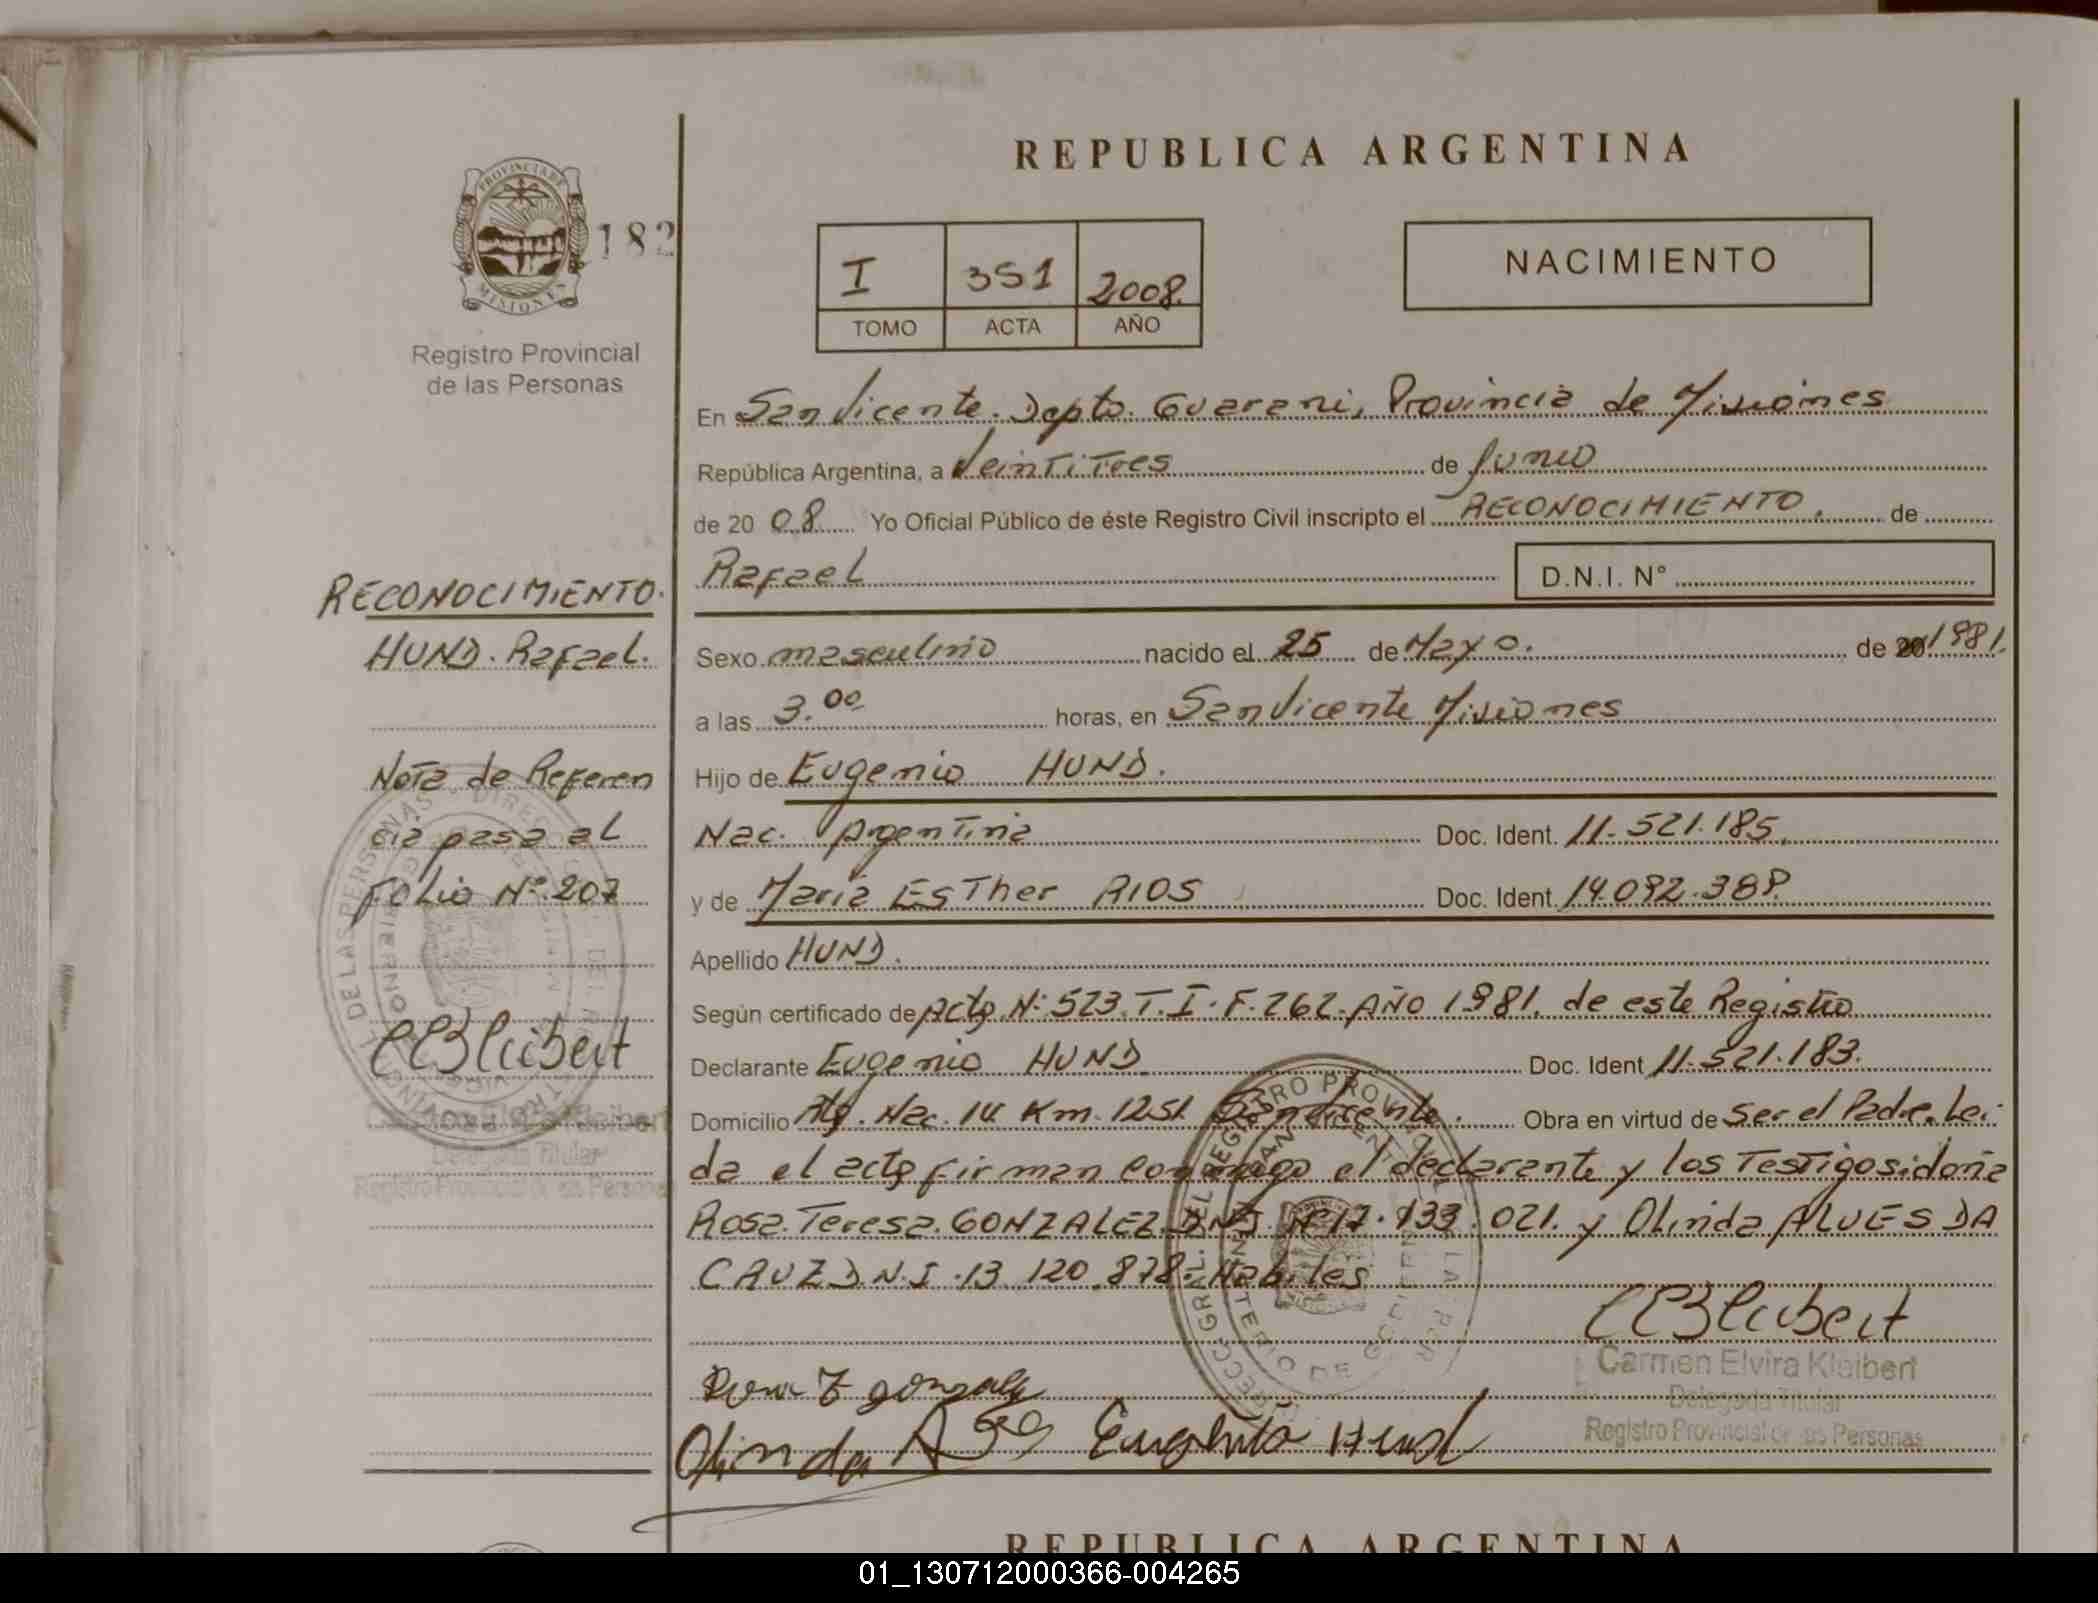 REPUBLICA ARGENTINA
PROVINCIA DE
MISIONES
182
Registro Provincial
de las Personas
I 351 2008.
TOMO ACTA AÑO
NACIMIENTO
En San Vicente. Depto. Guarani, Provincia de Misiones
República Argentina, a Veintitres de Junio
de 20 08 Yo Oficial Público de éste Registro Civil inscripto el RECONOCIMIENTO. de
Rafael D.N.I. N°
RECONOCIMIENTO.
HUND. Rafael.
Nota de Referen
cia pasa al
Folio N° 207
CEKleibert
Carmen Elvira Kleibert
Delegada Titular
Registro Provincial de las Personas
Sexo masculino nacido el 25 de Mayo. de 20 1981.
a las 3.00 horas, en San Vicente Misiones
Hijo de Eugenio HUND.
Nac. Argentina Doc. Ident. 11.521.185.
y de Maria Esther RIOS Doc. Ident. 14.092.388.
Apellido HUND.
Según certificado de Acta N: 523. T. I. F. 262. AÑO 1981. de este Registro
Declarante Eugenio HUND Doc. Ident 11.521.183.
Domicilio Rta. Nac. 14 Km. 1251. San Vicente. Obra en virtud de ser el Padre. Lei
da el acta firman conmigo el declarante y los Testigos idonia
Rosa. Teresa. GONZALEZ. DNI. N° 17.133.021. y Olinda ALVES DA
CRUZ D.N.I. 13 120.878. Habiles
CEKleibert
Carmen Elvira Kleibert
Delegada Titular
Registro Provincial de las Personas
Rosa T gonzalez
Olinda A Eugenio Hund
REPUBLICA ARGENTINA
01_130712000366-004265